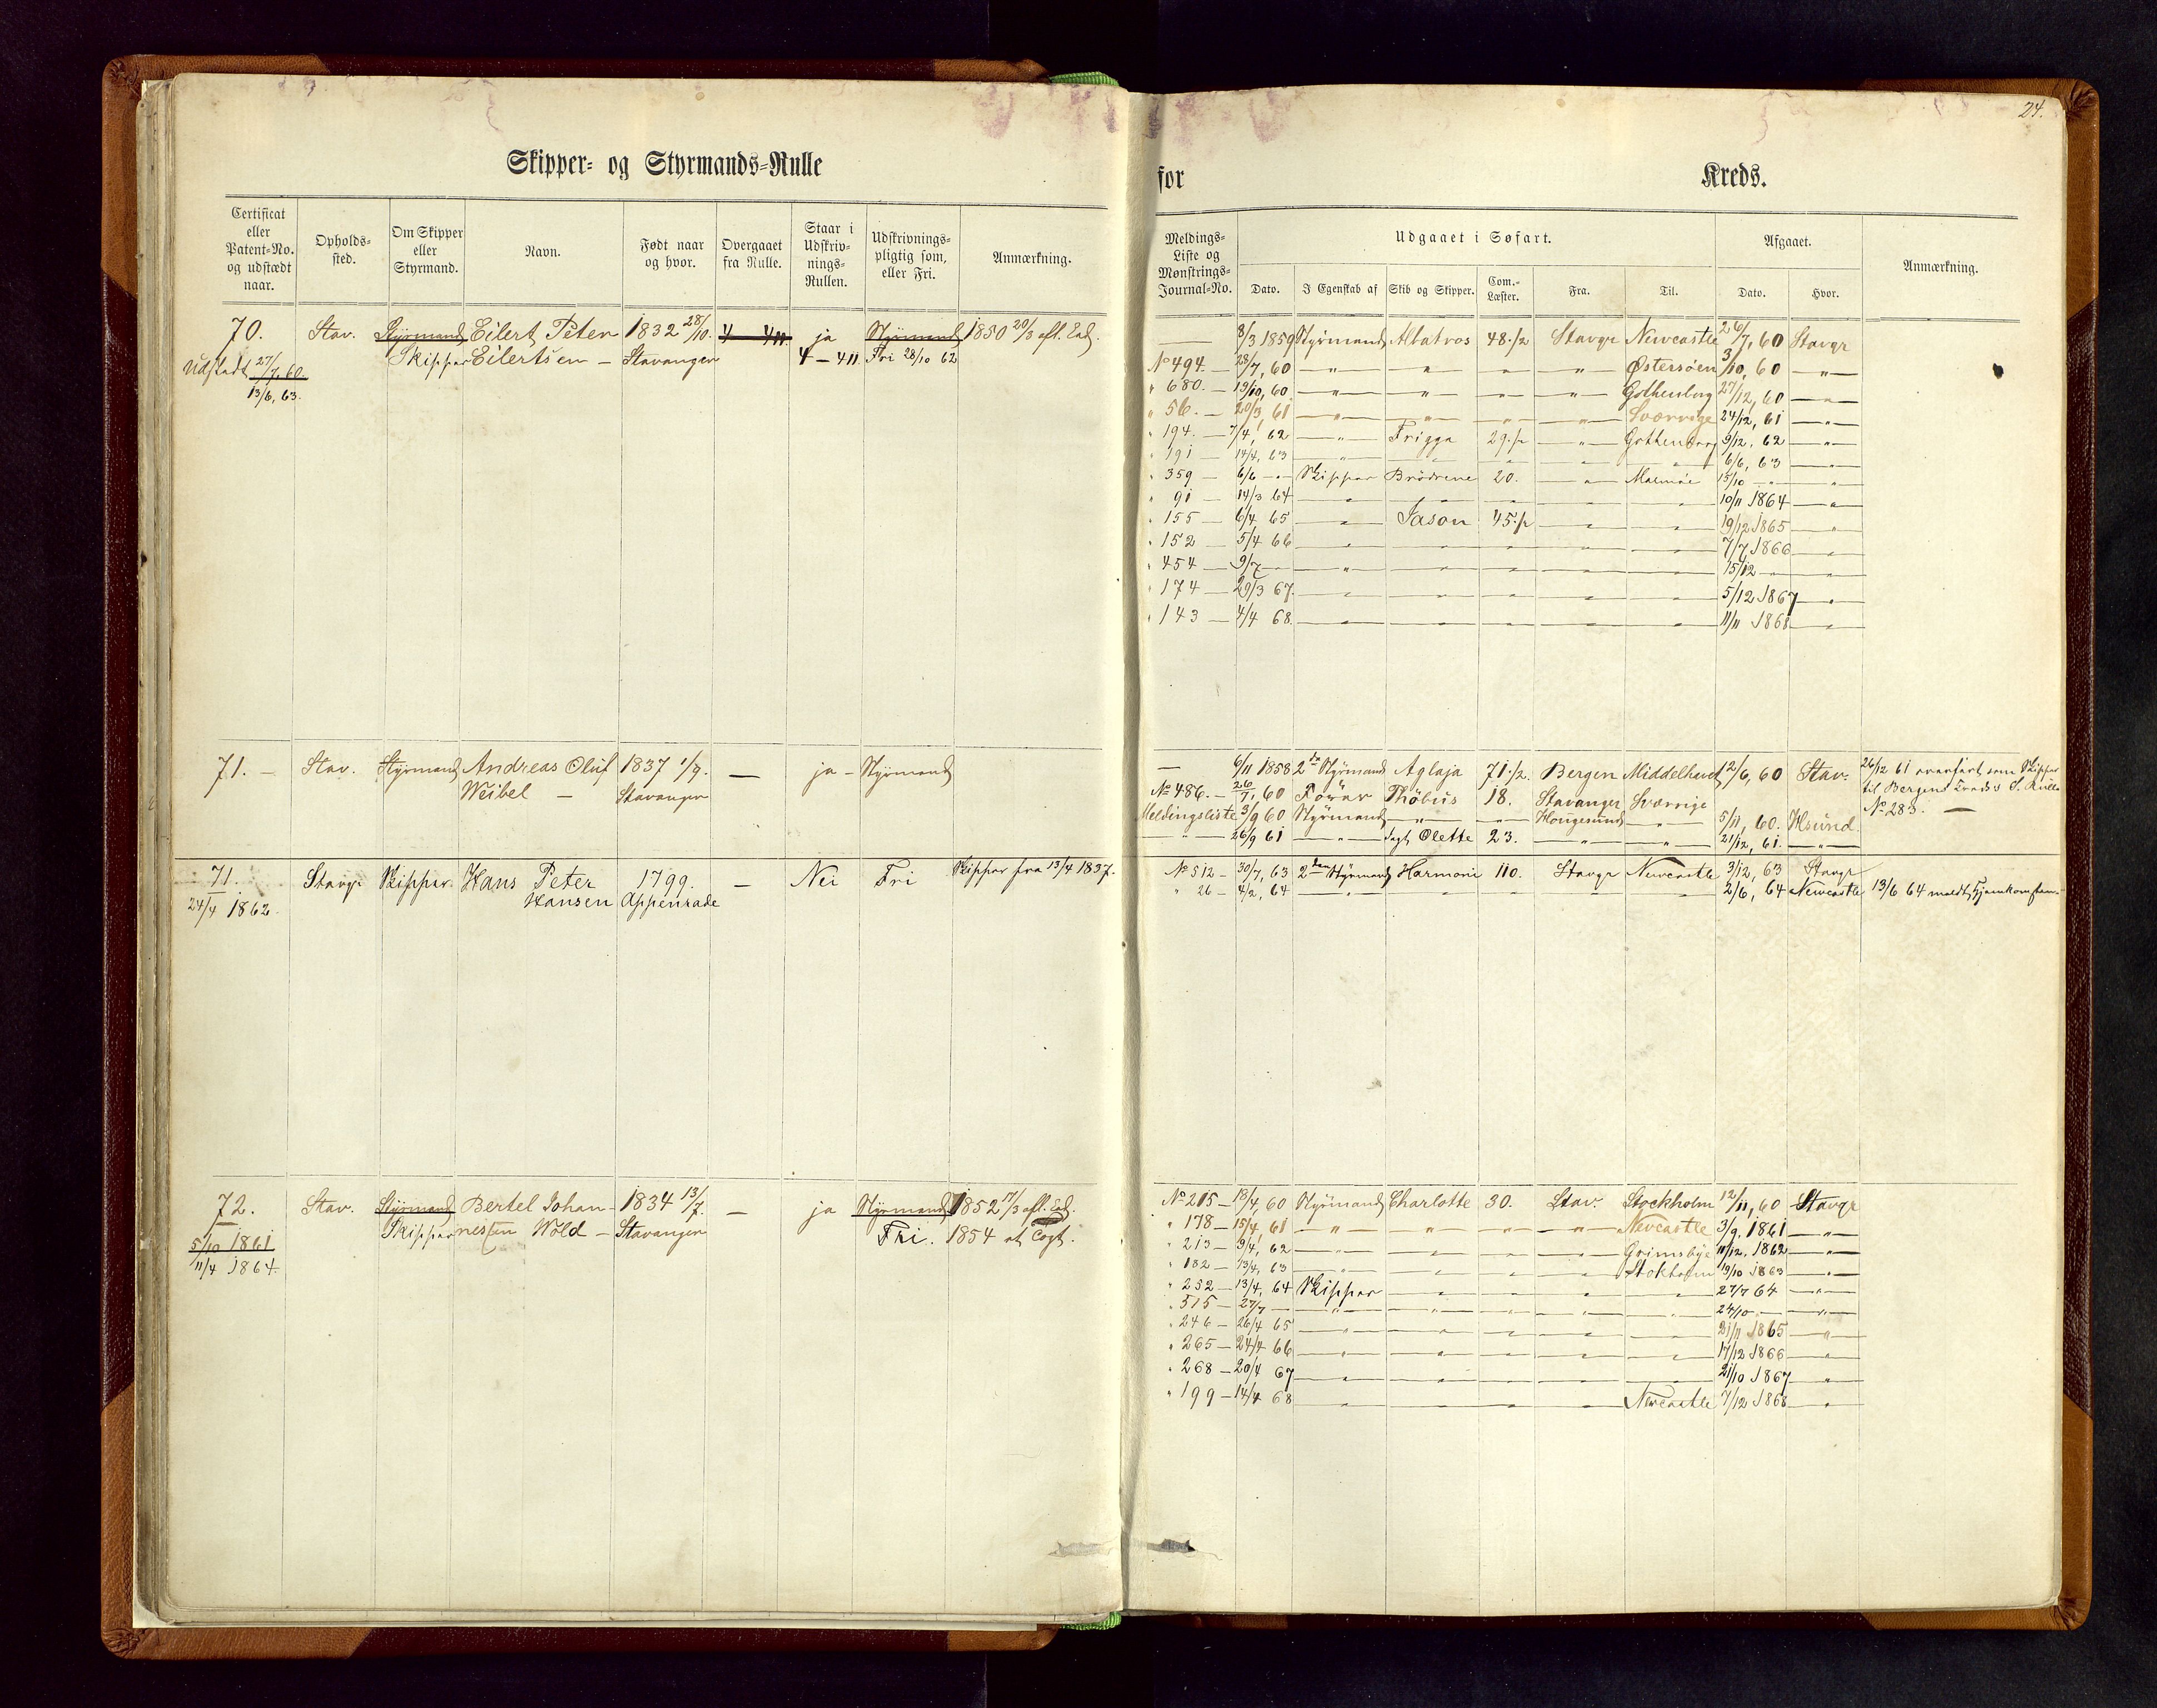 24.
Skipper- og Styrmands-Rulle
for Kreds.
Certificat eller Patent-No. og udstædt naar.
Opholds-sted.
Om Skipper eller Styrmand.
Navn.
Født naar og hvor.
Overgaaet fra Rulle.
Staar i Udskriv-nings-Rullen.
Udskrivnings-pligtig som, eller Fri.
Anmærkning.
Meldings-Liste og Mønstrings-Journal-No.
Udgaaet i Søfart.
Dato. I Egenskab af Skib og Skipper. Com.-Læster. Fra. Til.
Afgaaet.
Dato. Hvor.
Anmærkning.
70. Stav. Styrmand Eilert Peter 1832 28/10. 4 411. ja Styrmand 1850 20/3 afl. Ed.
Udstedt 27/7, 60. Skipper Eilertsen – Stavanger 4 – 411. Fri 28/10 62
13/6, 63.
— 8/3 1859 Styrmand Albatros 48 1/2 Stavgr Newcastle 26/7, 60 Stavgr
No 494. – 28/7, 60 — " — " — " — " — Østersøen 3/10, 60 — " —
" 680. – 13/10, 60 — " — " — " — " — Gothenborg 27/12, 60 — " —
" 56. – 20/3, 61 — " — " — " — " — Sverrige 24/12, 61 — " —
" 194. – 7/4, 62 — " — Frigga 29 1/2 — " — Gothenborg 9/12. 62 — " —
" 191 – 14/4, 63 — " — " — " — " — " — 6/6, 63 — " —
" 359 – 6/6 – " – Skipper Brödrene 20. — " — Malmøe 15/10 — " — " —
" 91 – 14/3 64 — " — " — " — " — " — 10/11 1864 — " —
" 155 – 6/4 65 — " — Jason 45 1/2 — " — " — 19/12 1865 — " —
" 152 – 5/4 66 — " — " — " — " — " — 7/7 1866 — " —
" 454 – 9/7 — " — " — " — " — " — 15/12 — " — " —
" 174 – 29/3 67. — " — " — " — " — " — 5/12 1867 — " —
" 143 – 4/4 68. — " — " — " — " — " — 11/11 1868 — " —
71. – Stav. Styrmand Andreas Oluf 1837 1/9. — ja – Styrmand
Weibel – Stavanger
— 6/11 1858 2den Styrmand Aglaja 71 1/2. Bergen Middelhavet 12/6, 60 Stav. 26/12 61 overført som Skipper
til Bergens Kreds's S. Rulle
No 486. – 26/7, 60 Förer Phöbus 18. Stavanger Sverrige No 283. —
Meldingsliste 3/9 60 Styrmand — " — " — Hougesund — " — 5/11, 60. Hsund.
— " — 26/9 61 — " — Jagt Olette 23. — " — " — 21/12, 61. — " —
71. Stavgr Skipper. Hans Peter 1799. — Nei Fri Skipper fra 13/4 1837.
24/4 1862. Hansen Appenrade
No 512 – 30/7, 63 2den Styrmand Harmoni 110. Stavgr Newcastle 3/12, 63 Stavgr
" 26 – 4/2, 64 — " — " — " — " — " — 2/6, 64 Newcastle 13/6 64 meldt Hjemkomsten.
72. Stav. Styrmand Bertel Johan- 1834 13/7. — ja Styrmand 1852 17/3 afl. Ed.
5/10 1861 Skipper nessen Wold – Stavanger Fri. 1854 et Togt.
11/4 1864.
No 215 – 18/4, 60 Styrmand Charlotte 30. Stav. Stockholm 12/11, 60 Stavgr
" 178 – 15/4, 61 — " — " — " — " — Newcastle 3/9, 1861 — " —
" 213 – 9/4, 62 — " — " — " — " — Grimsbye 11/12. 1862 — " —
" 182 – 13/4, 63 — " — " — " — " — Stokholm 19/10 1863 — " —
" 252 – 13/4, 64 Skipper — " — " — " — " — 27/7 64 — " —
" 515 – 27/7 — " — " — " — " — " — 24/10 — " — " —
" 246 – 26/4 65 — " — " — " — " — " — 21/11 1865 — " —
" 265 – 24/4 66 — " — " — " — " — " — 17/12 1866 — " —
" 268 – 20/4 67 — " — " — " — " — " — 21/10 1867 — " —
" 199 – 14/4 68 — " — " — " — " — Newcastle 7/12 1868 — " —